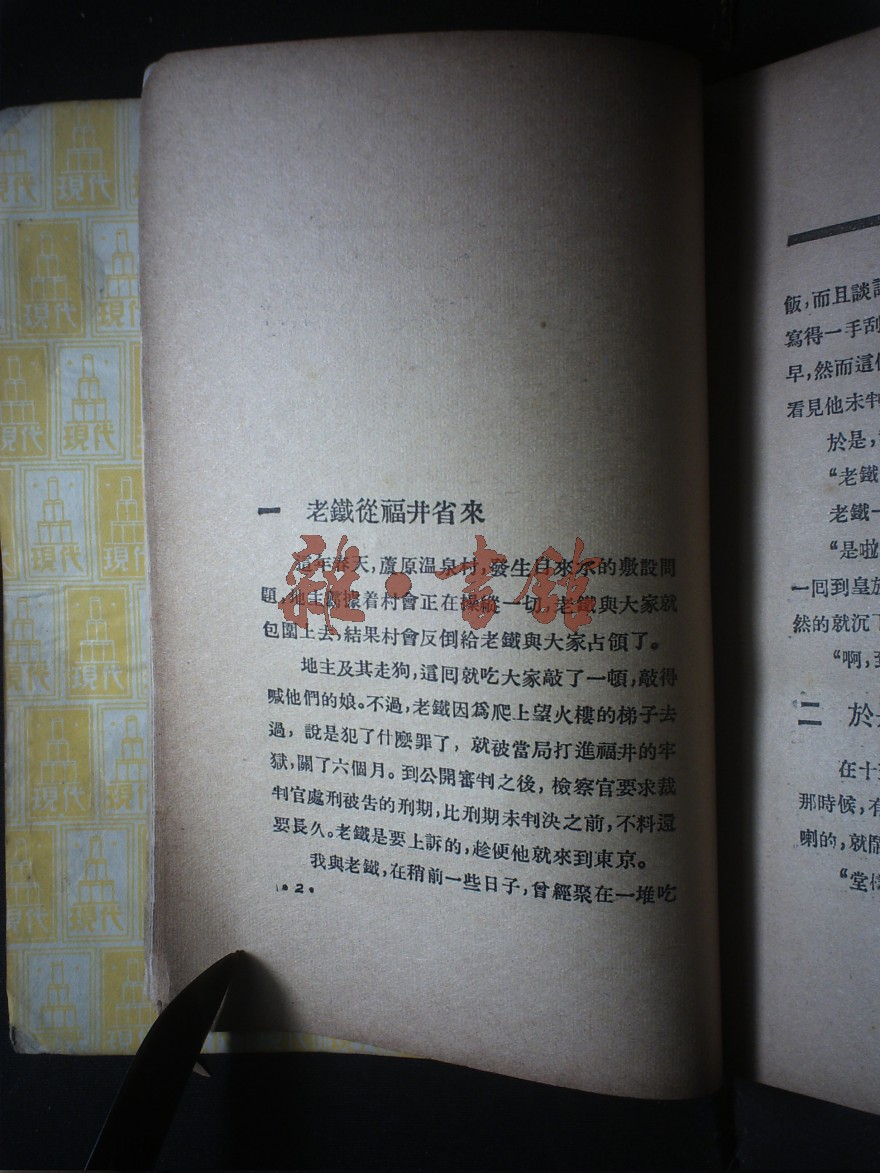 一 老鐵從福井省來
這年春天,蘆原溫泉村,發生自來水的敷設問
題,地主們據着村會正在操縱一切,老鐵與大家就
包圍上去,結果村會反倒給老鐵與大家占領了。
地主及其走狗,這囘就吃大家敲了一頓,敲得
喊他們的娘。不過,老鐵因爲爬上望火樓的梯子去
過,說是犯了什麽罪了,就被當局打進福井的牢
獄,關了六個月。到公開審判之後,檢察官要求裁
判官處刑被告的刑期,比刑期未判決之前,不料還
要長久。老鐵是要上訴的,趁便他就來到東京。
我與老鐵,在稍前一些日子,曾經聚在一堆吃
•2•
飯,而且談
寫得一手刮
早,然而這
看見他未
於是,
“老鐵
老鐵一
“是啦
一囘到皇
然的就沉
“啊,
二 於
在十
那時候,有
喇的,就
“堂
雜·書館
現代